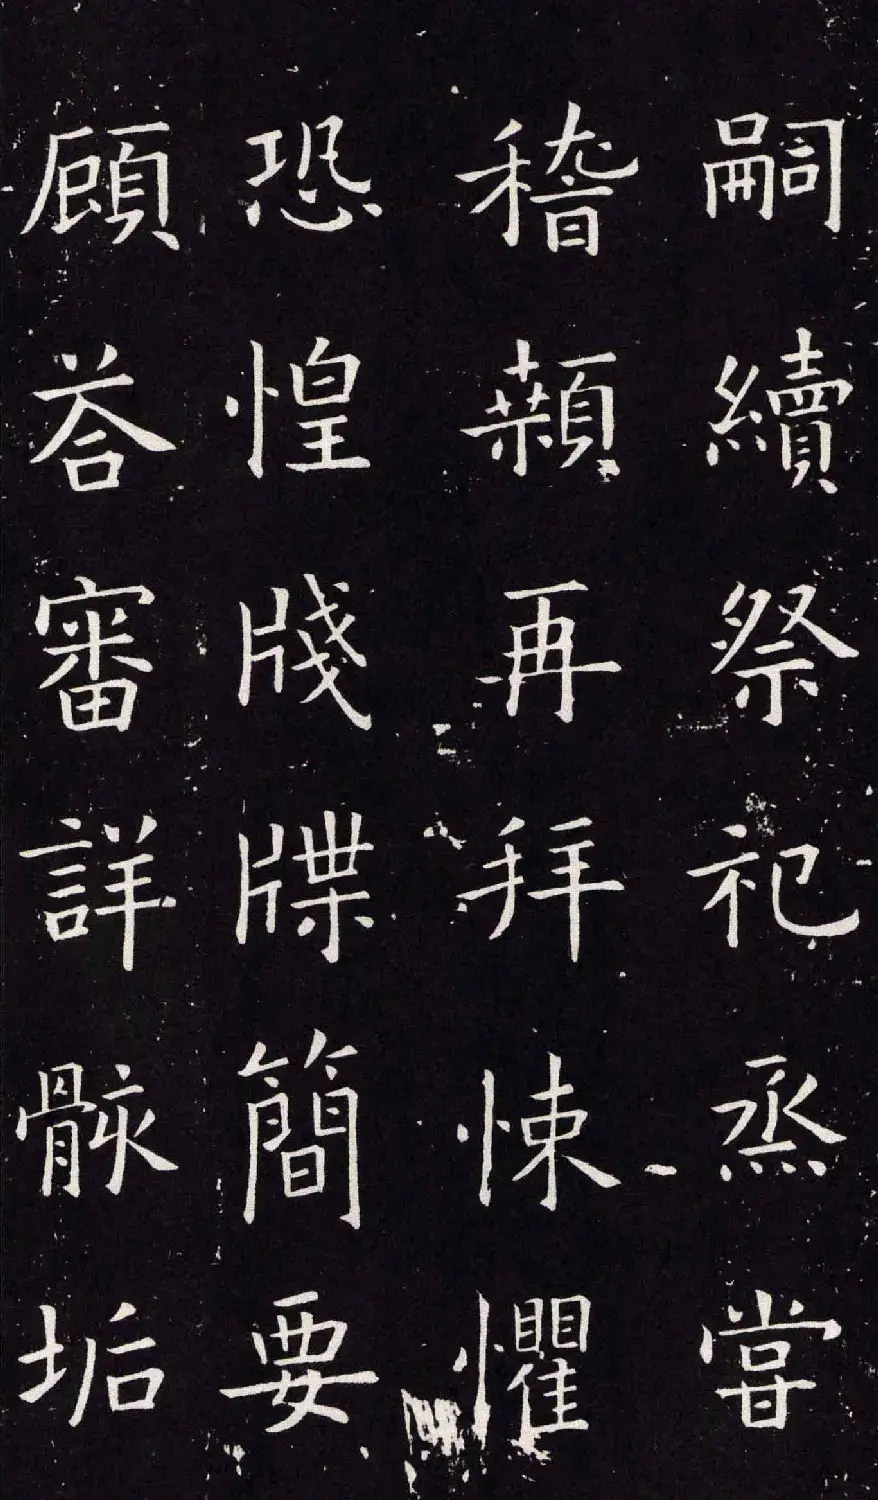 嗣續祭祀烝甞
稽顙再拜悚懼
恐惶牋牒簡要
顧荅審詳骸垢